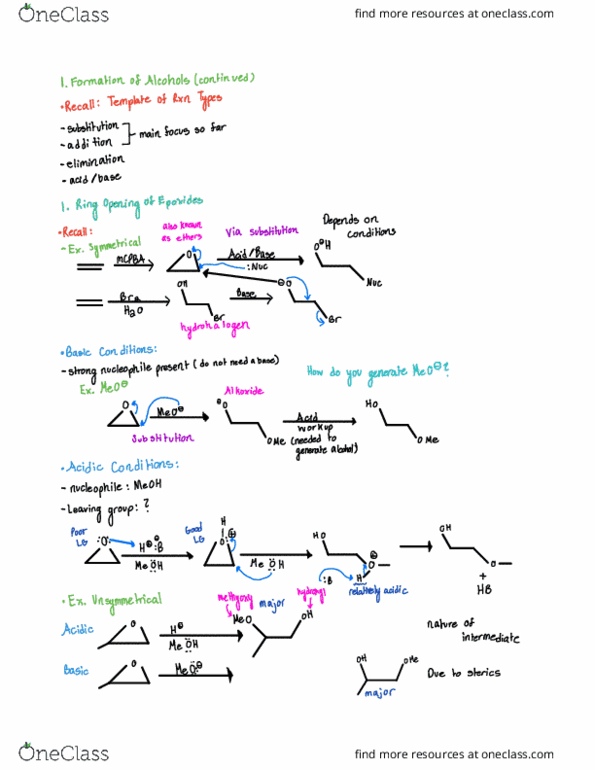 OneClass
find more resources at oneclass.com
1. Formation of Alcohols (continued)
•Recall: Template of Rxn Types
-substitution
-addition
main focus so far
-elimination
-acid/base
1. Ring Opening of Epoxides
•Recall:
-Ex. Symmetrical
also known as ethers
Via substitution
Depends on conditions
mCPBA
O
Acid/Base
:Nuc
OH
Nuc
Br2
H2O
OH
Br
Base
⊖O
Br
hydrohalogen
•Basic Conditions:
-strong nucleophile present (do not need a base)
Ex. MeO⊖
How do you generate MeO⊖?
O
MeO⊖
Substitution
Alkoxide
⊖O
OMe
Acid
workup
(needed to generate alcohol)
HO
OMe
•Acidic Conditions:
-nucleophile: MeOH
-Leaving group: ?
Poor LG
:O:
H⊕ :B
MeÖH
Good LG
H
O: ⊕
MeÖH
HO
⊕
O
H
:B
relatively acidic
OH
O
+
HB
•Ex. Unsymmetrical
Acidic
O
H⊕
MeÖH
methyoxy
MeO
major
hydroxyl
OH
nature of intermediate
Basic
O
MeÖ⊖
OH
OMe
major
Due to sterics
OneClass
find more resources at oneclass.com